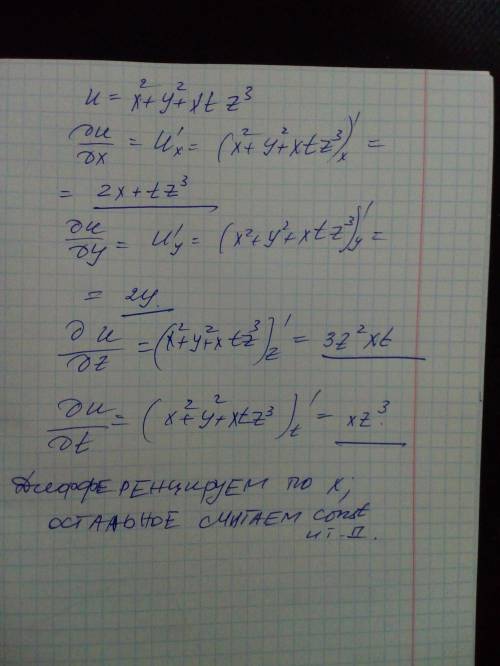 u = x² + y² + xt z³
∂u/∂x = u'ₓ = (x² + y² + xtz³)'ₓ =
= 2x + tz³
∂u/∂y = u'_y = (x² + y² + xtz³)'_y =
= 2y.
∂u/∂z = (x² + y² + xtz³)'_z = 3z²xt
∂u/∂t = (x² + y² + xtz³)'_t = xz³.
Дифференцируем по x;
остальное считаем const
и т.п.